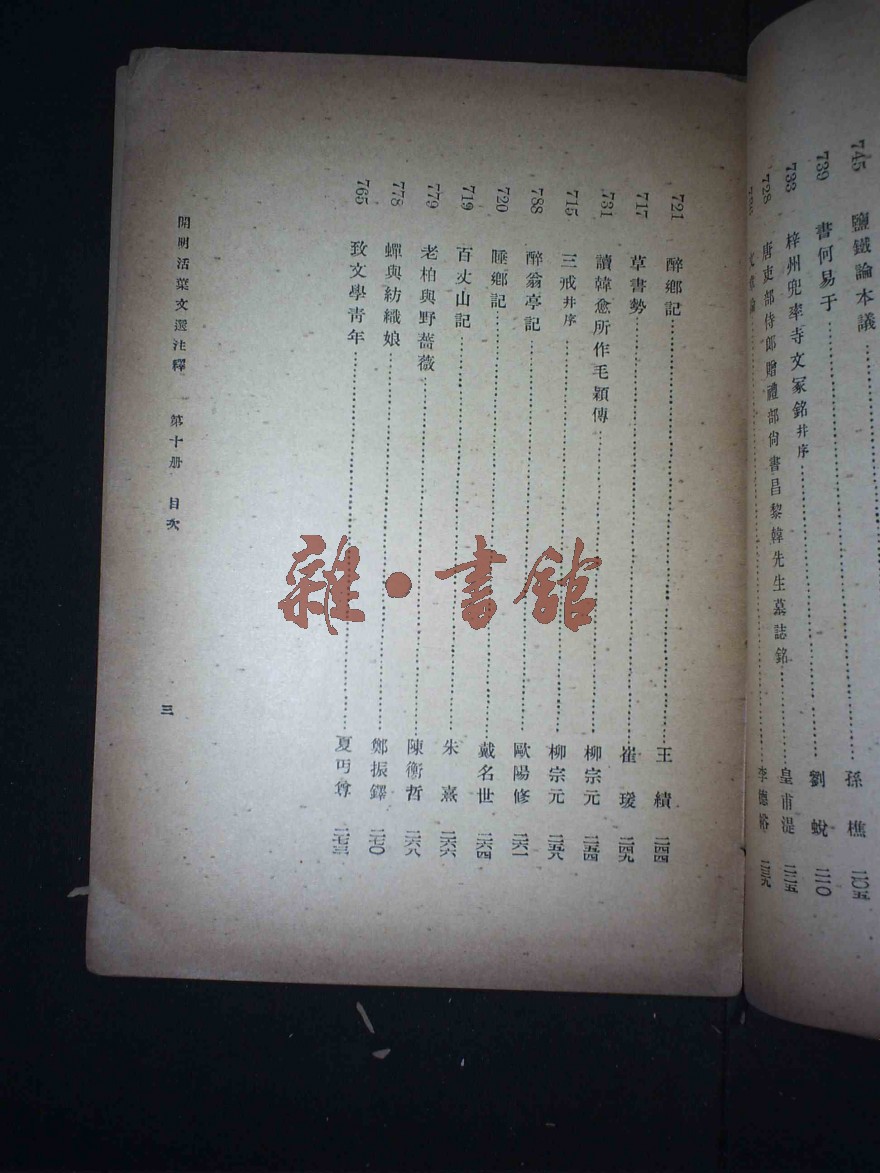 745 鹽鐵論本議 孫樵 二〇五
739 書何易于 劉蛻 二一〇
733 梓州兜率寺文冢銘并序 皇甫湜 二二五
728 唐吏部侍郎贈禮部尚書昌黎韓先生墓誌銘 李德裕 二三九
721 醉鄉記 王績 二四四
717 草書勢 崔瑗 二四九
731 讀韓愈所作毛穎傳 柳宗元 二五四
715 三戒并序 柳宗元 二五八
788 醉翁亭記 歐陽修 二六一
720 睡鄉記 戴名世 二六四
719 百丈山記 朱熹 二六六
779 老柏與野薔薇 陳衡哲 二六八
778 蟬與紡織娘 鄭振鐸 二七〇
765 致文學青年 夏丏尊 二七三
開明活葉文選注釋 第十册 目次 三
雜·書館